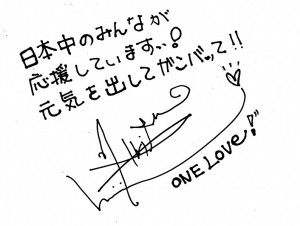 日本中のみんなが
応援しています…!
元気を出してガンバッて!!
ONE LOVE!